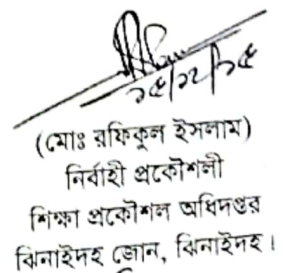 ১৫/১২/১৫
(মোঃ রফিকুল ইসলাম)
নির্বাহী প্রকৌশলী
শিক্ষা প্রকৌশল অধিদপ্তর
ঝিনাইদহ জোন, ঝিনাইদহ।